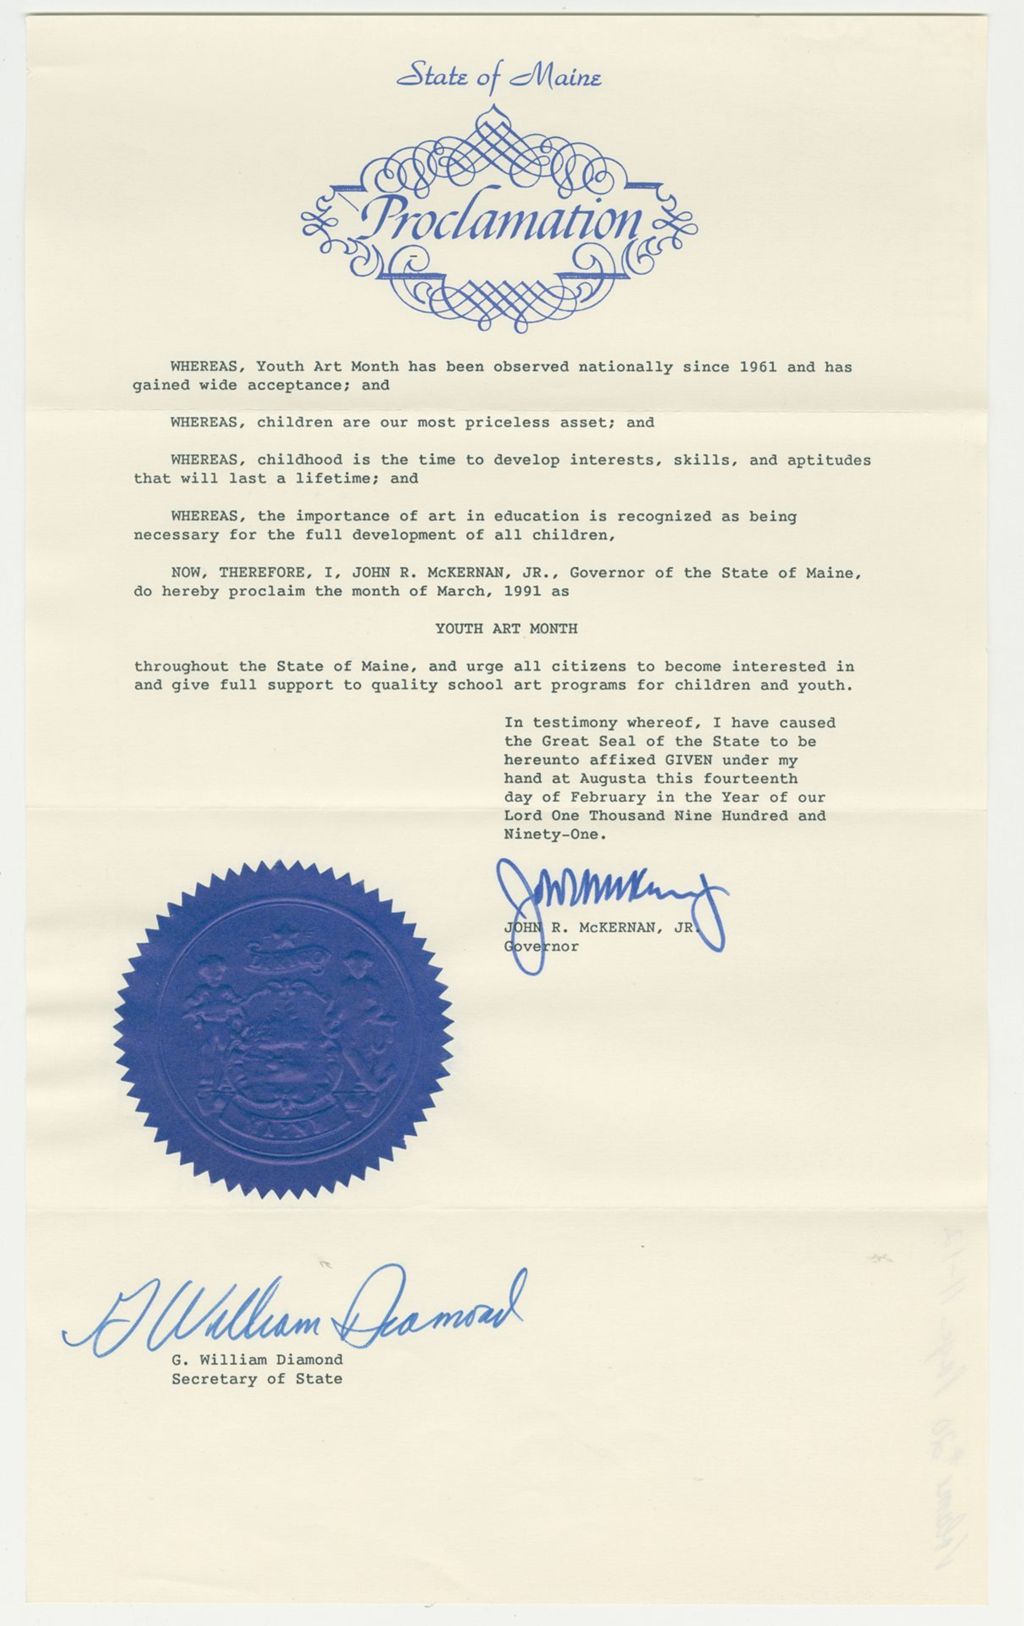 State of Maine
Proclamation
WHEREAS, Youth Art Month has been observed nationally since 1961 and has
gained wide acceptance; and
WHEREAS, children are our most priceless asset; and
WHEREAS, childhood is the time to develop interests, skills, and aptitudes
that will last a lifetime; and
WHEREAS, the importance of art in education is recognized as being
necessary for the full development of all children,
NOW, THEREFORE, I, JOHN R. McKERNAN, JR., Governor of the State of Maine,
do hereby proclaim the month of March, 1991 as
YOUTH ART MONTH
throughout the State of Maine, and urge all citizens to become interested in
and give full support to quality school art programs for children and youth.
In testimony whereof, I have caused
the Great Seal of the State to be
hereunto affixed GIVEN under my
hand at Augusta this fourteenth
day of February in the Year of our
Lord One Thousand Nine Hundred and
Ninety-One.
JOHN R. McKERNAN, JR.
Governor
G William Diamond
G. William Diamond
Secretary of State